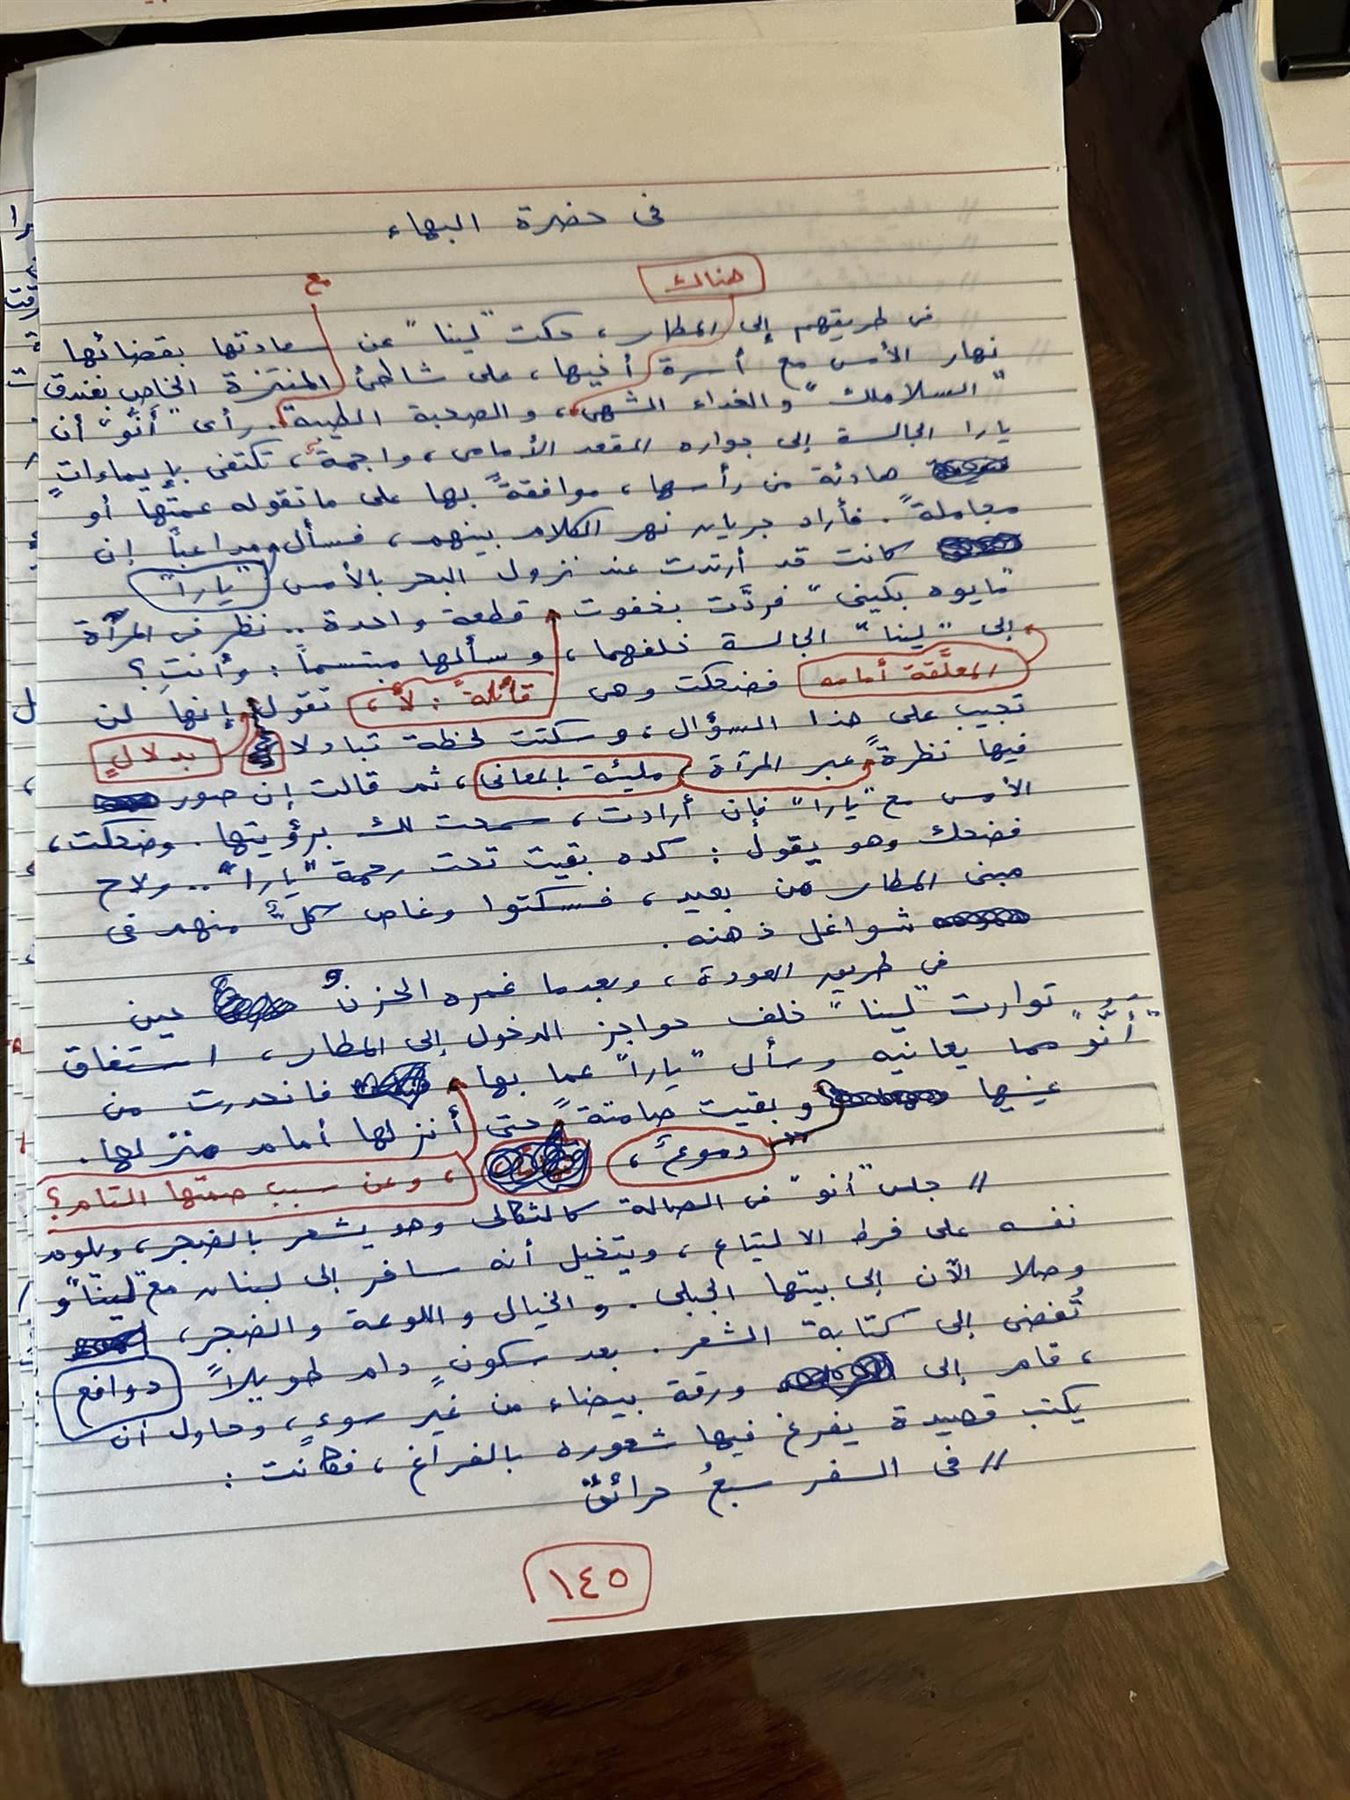 فى حضرة البهاء
هنالك
مع
فى طريقهم إلى المطار، حكت "لينا" عن سعادتها بقضائها
نهار الأمس مع أسرة أخيها، على شاطئ المنتزة الخاص بفندق
"السلاملك" والغداء الشهى، والصحبة الطيبة. رأى "أَنُّو" أن
يارا الجالسة إلى جواره المقعد الأمامى، واجمةً، تكتفى بإيماءاتٍ
هادئة من رأسها، موافقةً بها على ما تقوله عمتها أو
مجاملةً. فأراد جريان نهر الكلام بينهم، فسأل مداعباً إن
كانت قد أرتدت عند نزول البحر بالأمس "يارا"
"مايوه بكينى" فردَّت بخفوت قطعة واحدة .. نظر فى المرآة
إلى "لينا" الجالسة خلفهما، وسألها مبتسماً: وأنتِ؟
المعلَّقة أمامه فضحكت وهى قائلةً: لأ، تقول إنها لن
تجيب على هذا السؤال، وسكتت لحظة تبادلا بدلالٍ
فيها نظرةً عبر المرآة مليئة بالمعانى، ثم قالت إن صور
الأمس مع "يارا" فإن أرادت، سمحت لك برؤيتها. وضحكت،
فضحك وهو يقول: كده بقيت تحت رحمة "يارا" .. ولاح
مبنى المطار من بعيد، فسكتوا وغاص كلٌّ منهم فى
شواغل ذهنه.
فى طريق العودة، وبعدما غمره الحزنُ حين
توارت "لينا" خلف حواجز الدخول إلى المطار، استفاق
"أَنُّو" مما يعانيه وسأل "يارا" عما بها فانحدرت من
عينيها وبقيت صامتةً حتى أنزلها أمام منزلها.
دموعٌ، ، وعن سبب صمتها التام؟
// جلس "أنو" فى الصالة كالثكالى وهو يشعر بالضجر، ويلوم
نفسه على فرط الالتياع، ويتخيل أنه سافر إلى لبنان مع "لينا" و
وصلا الآن إلى بيتها الجبلى. والخيال واللوعة والضجر،
تُفضى إلى كتابة الشعر. بعد سكونٍ دام طويلاً دوافع
، قام إلى ورقة بيضاء من غير سوءٍ، وحاول أن
يكتب قصيدة يفرغ فيها شعوره بالفراغ، فكانت:
// فى السفر سبعُ حرائقٌ
١٤٥